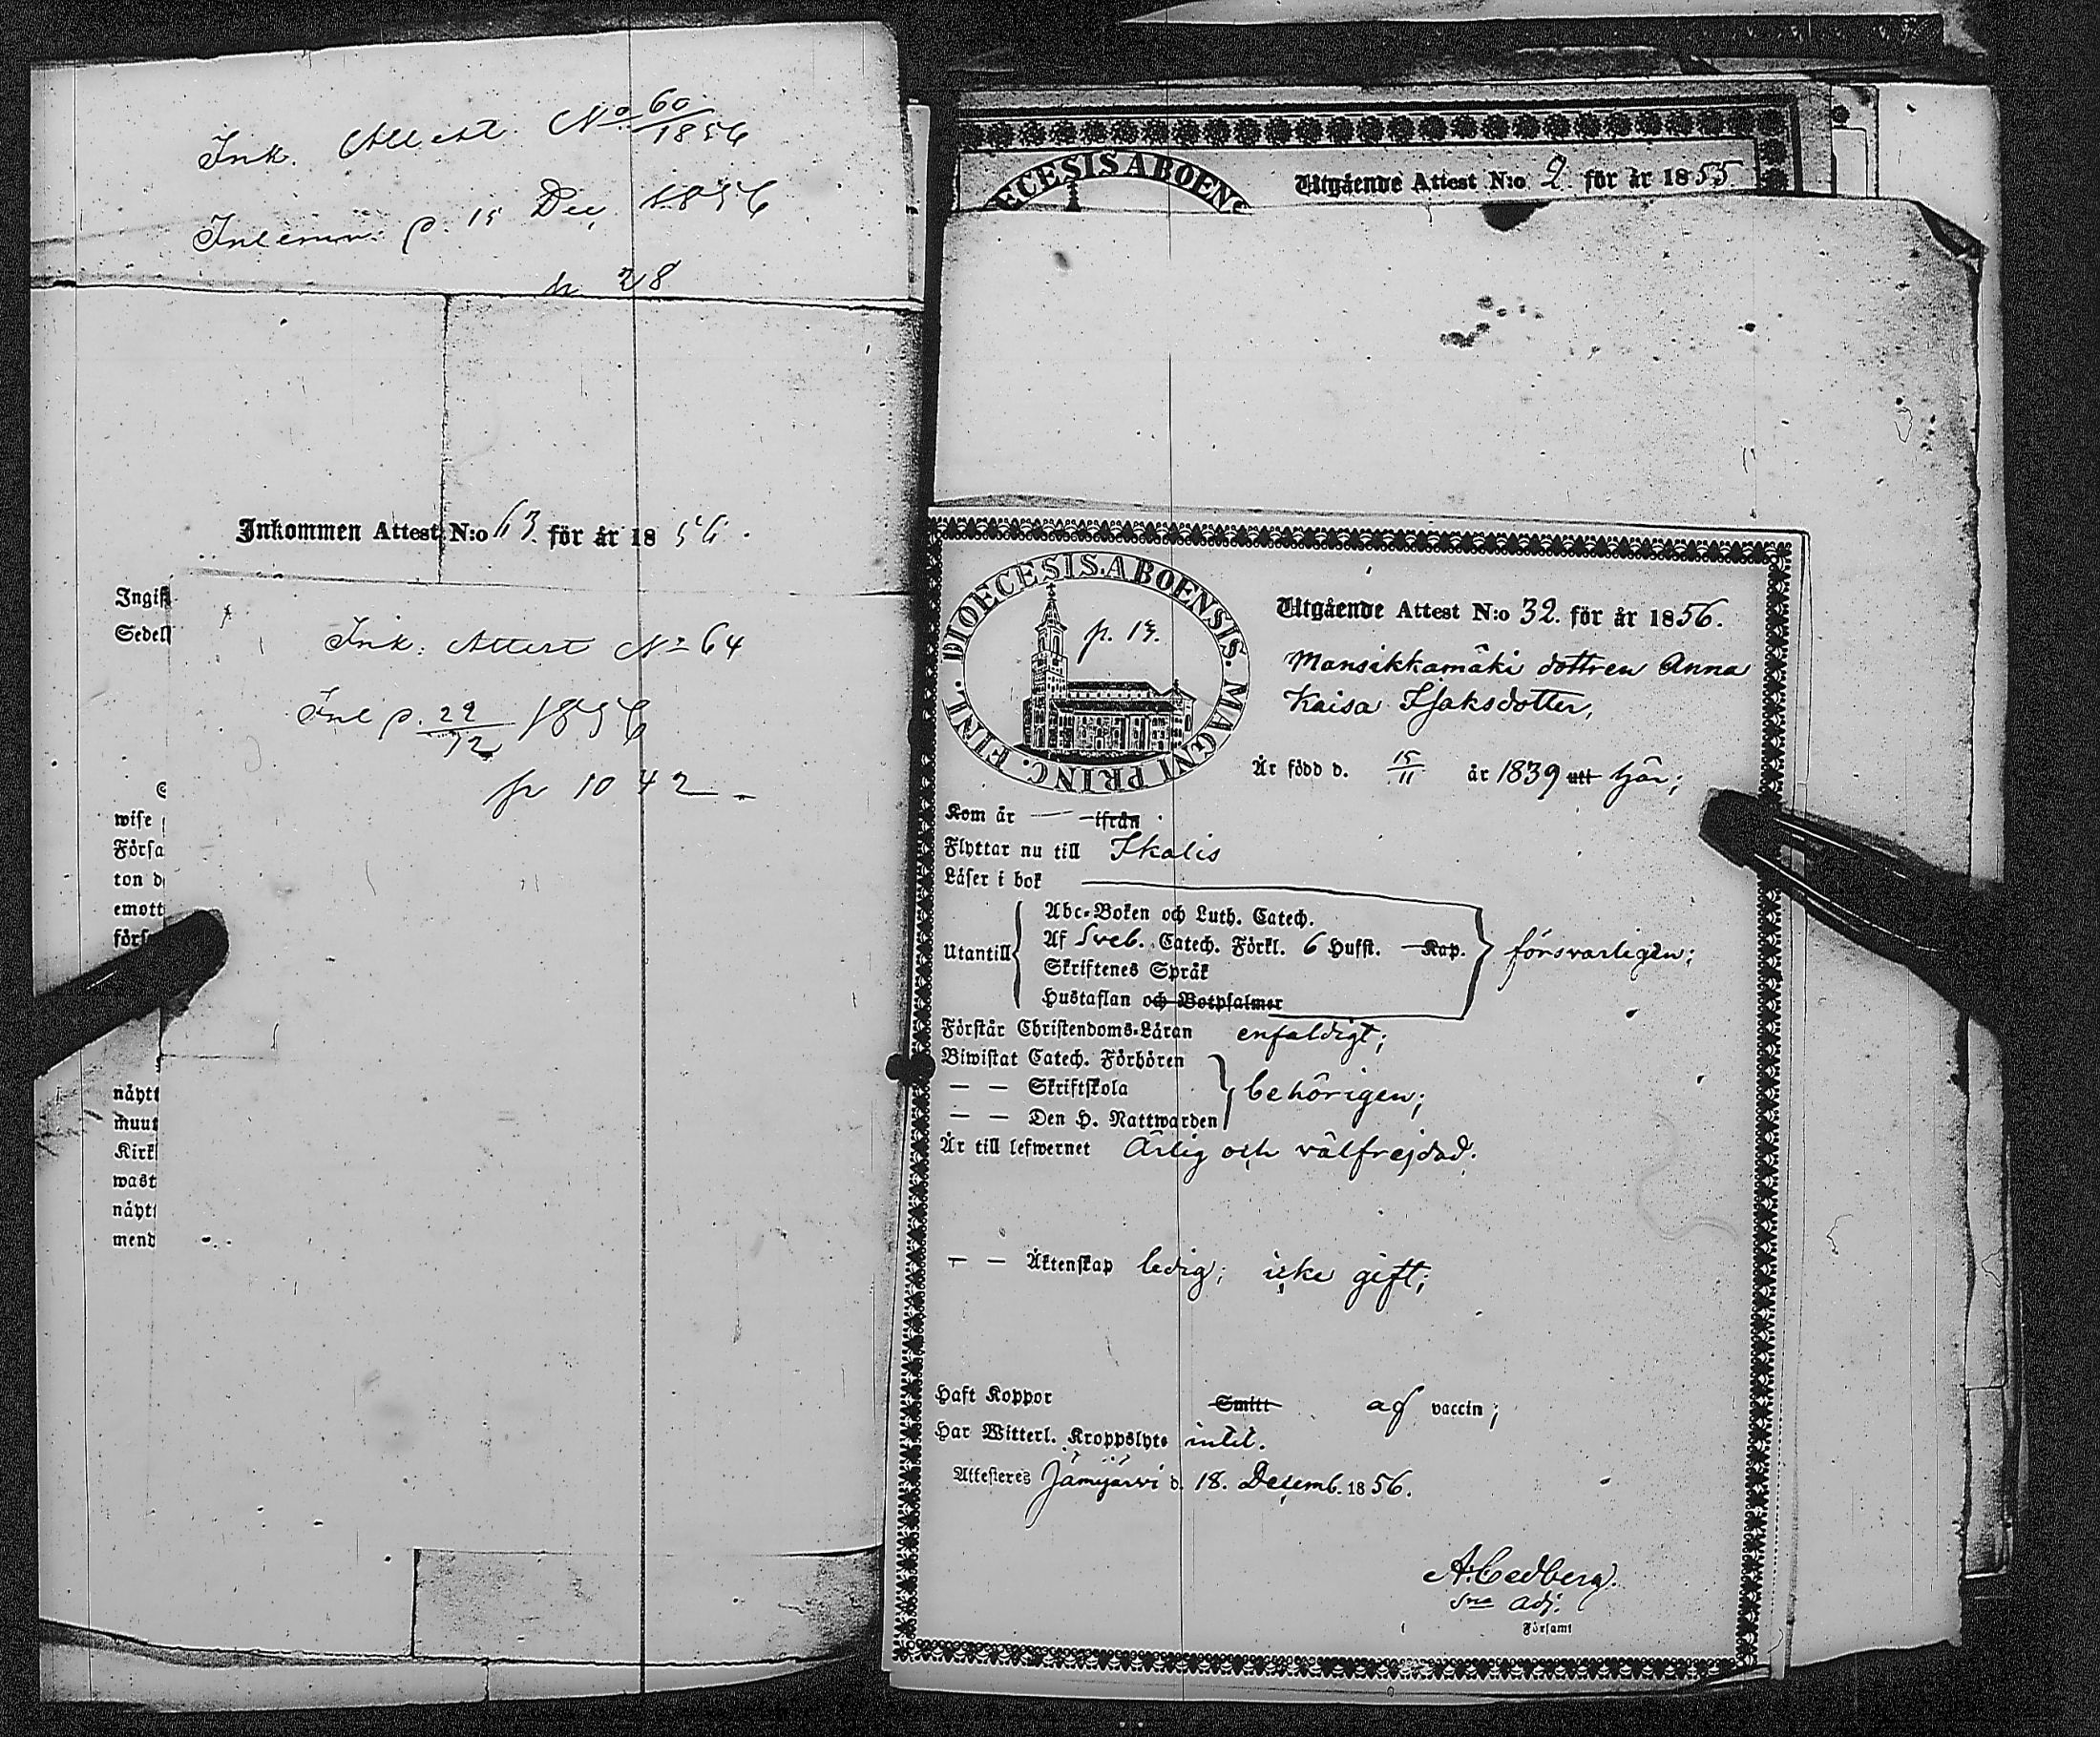 Ink. Attest. No 60/1856
Inlemn. p. 15 Dec 1856
p. 28
Inkommen Attest N:o 63. för år 18 56.
Sedel
Ink. Attest No 64
Inl p. 29/12 1856
p. 1042
wise
Förſa
ton d
emott
förſ
näytt
muut
Kirk
wast
näyt
mend
ECESIS ABOEN
Utgående Attest N:o 2. för år 1855
DIOECESIS. ABOENSIS. MAGNI PRINC. FINL.
p. 13.
Utgående Attest N:o 32. för år 1856.
Mansikkamäki dottren Anna
Kaisa Isaksdotter,
Är född d. 15/11 år 1839 utt här;
Kom år — ifrån
Flyttar nu till Ikalis
Läſer i bok
Utantill
Abc-Boken och Luth. Catech.
Af Sveb. Catech. Förkl. 6 Hufſt. — Kap.
Skriftenes Språk
Hustaflan och Botpſalmer
försvarligen;
Förſtår Chriſtendoms-Läran enfaldigt;
Biwiſtat Catech. Förhören
— — Skriftſkola
— — Den H. Nattwarden
behörigen;
Är till lefwernet Ärlig och välfrejdad.
— — Äktenſkap ledig; icke gift;
Haft Koppor Smitt af vaccin;
Har Witterl. Kroppslyte intet.
Atteſteres Jämijärvi d. 18. Decemb. 1856.
A. Cedberg.
Sns Adj.
Förſaml